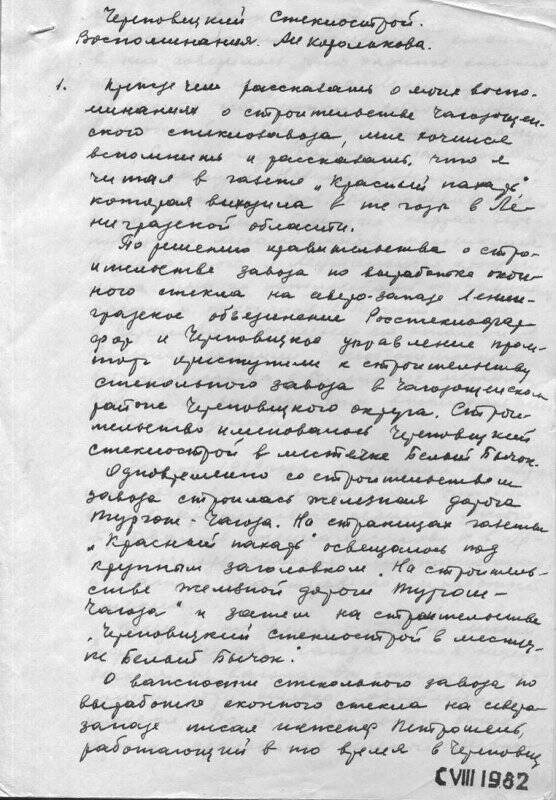 Череповицкий Стеклострой.
Воспоминания. Ан Королькова.
1. Прежде чем рассказать о моих воспо-
минаниях о строительстве Чагодощен-
ского стеклозавода, мне хочется
вспомнить и рассказать, что я
читал в газете „Красный пахарь"
которая выходила в те годы в Ле-
нинградской области.
По решению правительства о стро-
ительстве завода по выработке окон-
ного стекла на северо-западе Ленин-
градское объединение Росстеклофар-
фор и Череповицкое управление пром-
торг приступили к строительству
стекольного завода в Чагодощенском
районе Череповицкого округа. Строи-
тельство именовалось Череповицкий
стеклострой в местечке Белый Бычок.
Одновременно со строительством
завода строилась железная дорога
Тургош - Чагода. На страницах газеты
„Красный пахарь" освещалось под
крупным заголовком „На строитель-
стве железной дороги Тургош-
Чагода" и затем на строительстве
„Череповицкий стеклострой в местеч-
ке Белый Бычок".
О важности стекольного завода по
выработке оконного стекла на северо-
западе писал инженер Петрашень,
работающий в то время в Череповец
СVIII 1982